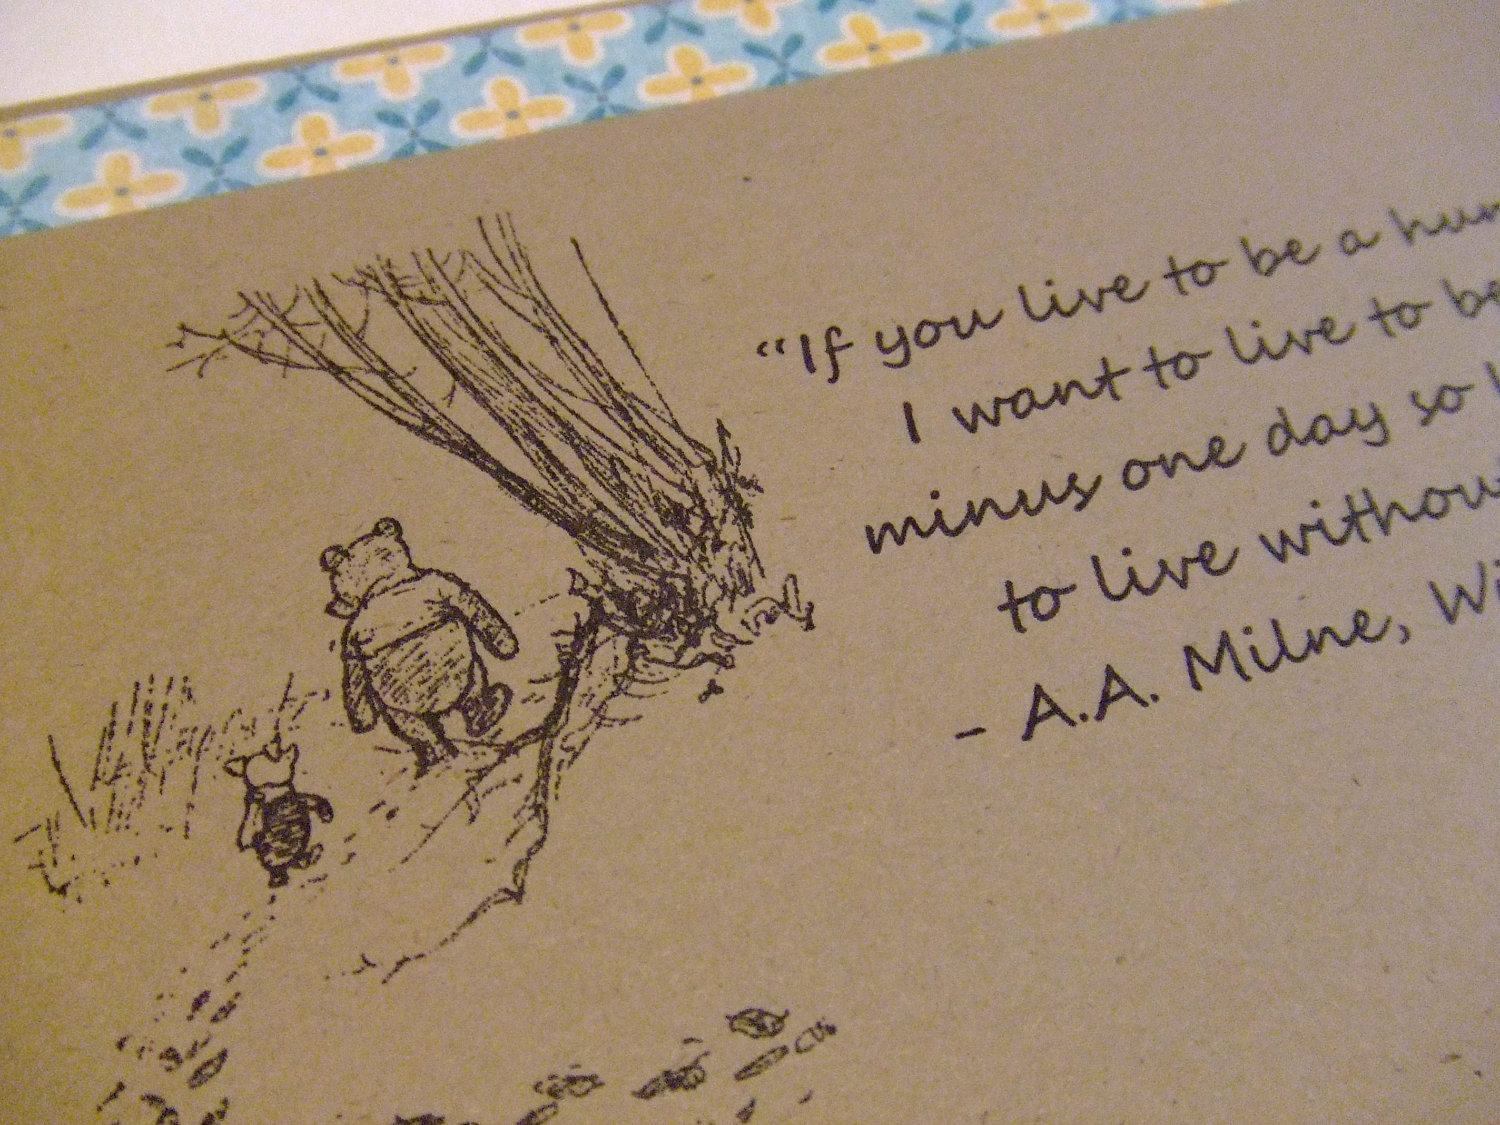 “If you live to be a hun
I want to live to be
minus one day so
to live withou
- A.A. Milne, Wi